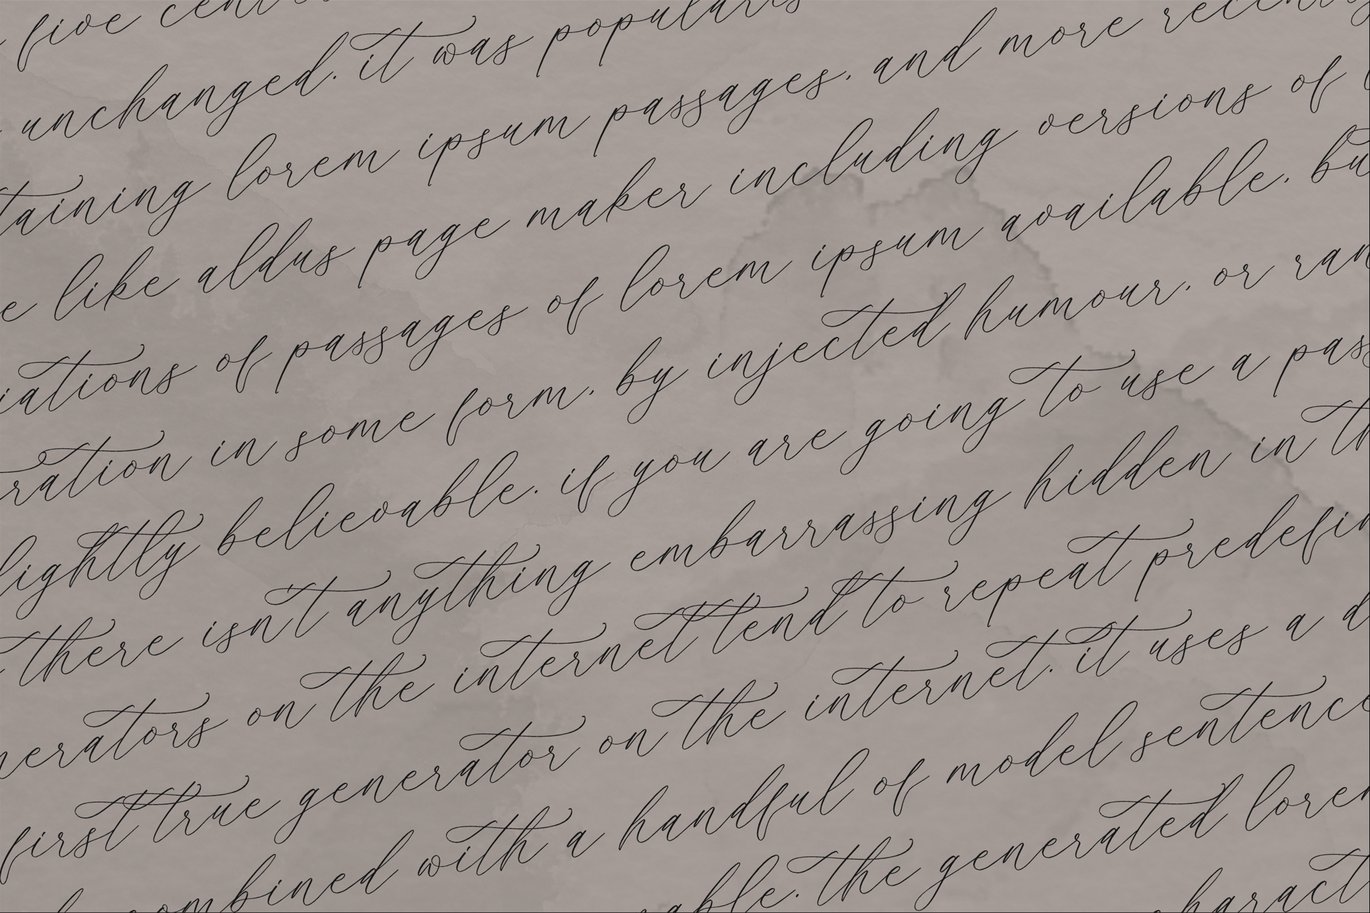 five cent
unchanged. it was popularis
taining lorem ipsum passages. and more recently
e like aldus page maker including versions of l
iations of passages of lorem ipsum available, bu
ration in some form, by injected humour, or ran
lightly believable. if you are going to use a pas
there isn't anything embarrassing hidden in th
nerators on the internet tend to repeat predefin
first true generator on the internet. it uses a d
combined with a handful of model sentence
able. the generated lorem
haract